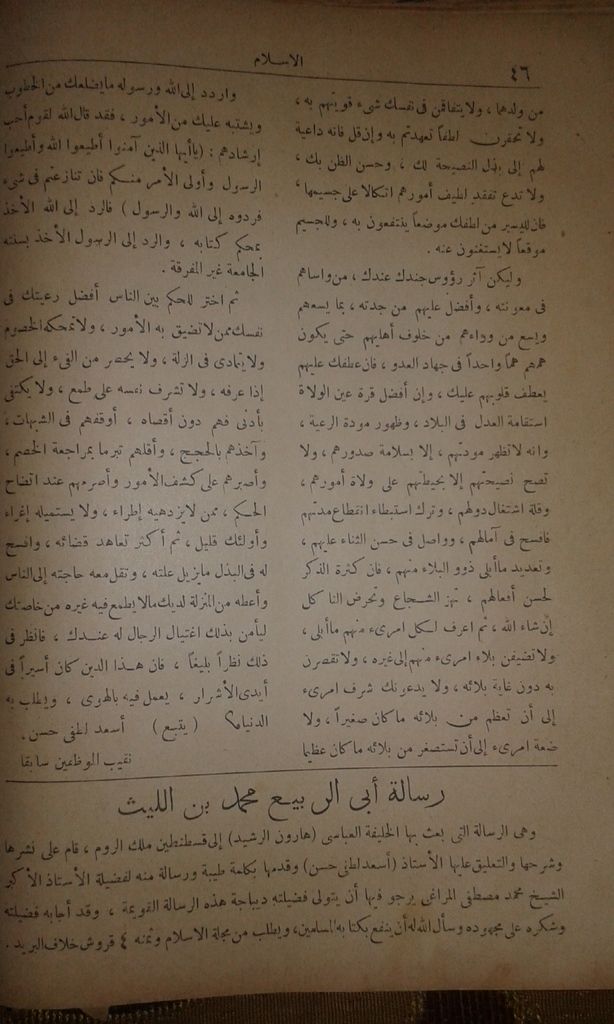 ٤٦
الاسلام
من ولدهما ، ولا يتفاقمن فى نفسك شىء قويتهم به ،
ولا تحقرن لطفاً تعهدتهم به وإن قل فانه داعية
لهم إلى بذل النصيحة لك ، وحسن الظن بك ،
ولا تدع تفقد لطيف أمورهم اتكالا على جسيمها ،
فان لليسير من لطفك موضعاً ينتفعون به ، وللجسيم
موقعاً لا يستغنون عنه .
وليكن آثر رؤوس جندك عندك ، من واساهم
فى معونته ، وأفضل عليهم من جدته ، بما يسعهم
ويسع من وراءهم من خلوف أهليهم حتى يكون
همهم هما واحداً فى جهاد العدو ، فان عطفك عليهم
يعطف قلوبهم عليك ، وإن أفضل قرة عين الولاة
استقامة العدل فى البلاد ، وظهور مودة الرعية ،
وانه لا تظهر مودتهم ، إلا بسلامة صدورهم ، ولا
تصح نصيحتهم إلا بحيطتهم على ولاة أمورهم ،
وقلة استثقال دولهم ، وترك استبطاء انقطاع مدتهم
فافسح فى آمالهم ، وواصل فى حسن الثناء عليهم ،
وتعديد ما أبلى ذوو البلاء منهم ، فان كثرة الذكر
لحسن أفعالهم ، تهز الشجاع وتحرض الناكل
إن شاء الله ، ثم اعرف لكل امرىء منهم ما أبلى ،
ولا تضيفن بلاء امرىء منهم إلى غيره ، ولا تقصرن
به دون غاية بلائه ، ولا يدعونك شرف امرىء
إلى أن تعظم من بلائه ما كان صغيراً ، ولا
ضعة امرىء إلى أن تستصغر من بلائه ما كان عظيما
واردد إلى الله ورسوله ما يضلعك من الخطوب
ويشتبه عليك من الأمور ، فقد قال الله لقوم أحب
إرشادهم : (يا أيها الذين آمنوا أطيعوا الله وأطيعوا
الرسول وأولى الأمر منكم فان تنازعتم فى شىء
فردوه إلى الله والرسول ) فالرد إلى الله الأخذ
بمحكم كتابه ، والرد إلى الرسول الأخذ بسنته
الجامعة غير المفرقة .
ثم اختر للحكم بين الناس أفضل رعيتك فى
نفسك ممن لا تضيق به الأمور ، ولا تمحكه الخصوم
ولا يتمادى فى الزلة ، ولا يحصر من الفىء إلى الحق
إذا عرفه ، ولا تشرف نفسه على طمع ، ولا يكتفى
بأدنى فهم دون أقصاه ، أوقفهم فى الشبهات ،
وآخذهم بالحجج ، وأقلهم تبرما بمراجعة الخصم ،
وأصبرهم على كشف الأمور وأصرمهم عند اتضاح
الحكم ، ممن لا يزدهيه إطراء ، ولا يستميله إغراء
وأولئك قليل ، ثم أكثر تعاهد قضائه ، وافسح
له فى البذل ما يزيل علته ، وتقل معه حاجته إلى الناس
وأعطه من المنزلة لديك ما لا يطمع فيه غيره من خاصتك
ليأمن بذلك اغتيال الرجال له عندك ، فانظر فى
ذلك نظراً بليغاً ، فان هذا الدين كان أسيراً فى
أيدى الأشرار ، يعمل فيه بالهوى ، ويطلب به
الدنيا ؟ ( يتبع ) أسعد لطفى حسن .
نقيب الموظفين سابقا
رسالة أبى الربيع محمد بن الليث
وهى الرسالة التى بعث بها الخليفة العباسى (هارون الرشيد) إلى قسطنطين ملك الروم ، قام على نشرها
وشرحها والتعليق عليها الأستاذ (أسعد لطفى حسن) وقدمها بكلمة طيبة ورسالة منه لفضيلة الأستاذ الأكبر
الشيخ محمد مصطفى المراغى يرجو فيها أن يتولى فضيلته ديباجة هذه الرسالة القويمة ، وقد أجابه فضيلته
وشكره على مجهوده وسأل الله له أن ينفع بكتابه المسلمين ، ويطلب من مجلة الاسلام وثمنه ٤ قروش خلاف البريد .